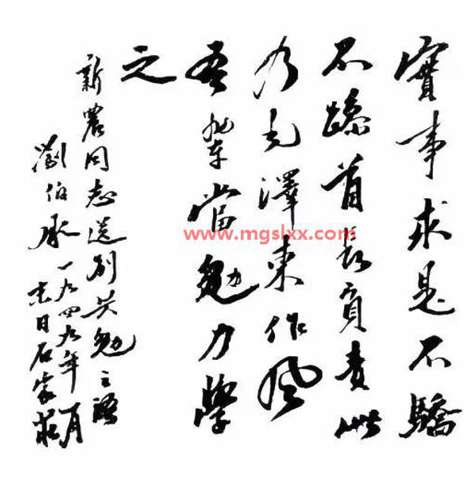 實事求是不驕
不躁負責此
乃毛澤東作風
吾輩當勉力學
之
新農同志送別共勉之語
劉伯承一九四九年月
日石家莊
www.mgslxx.com